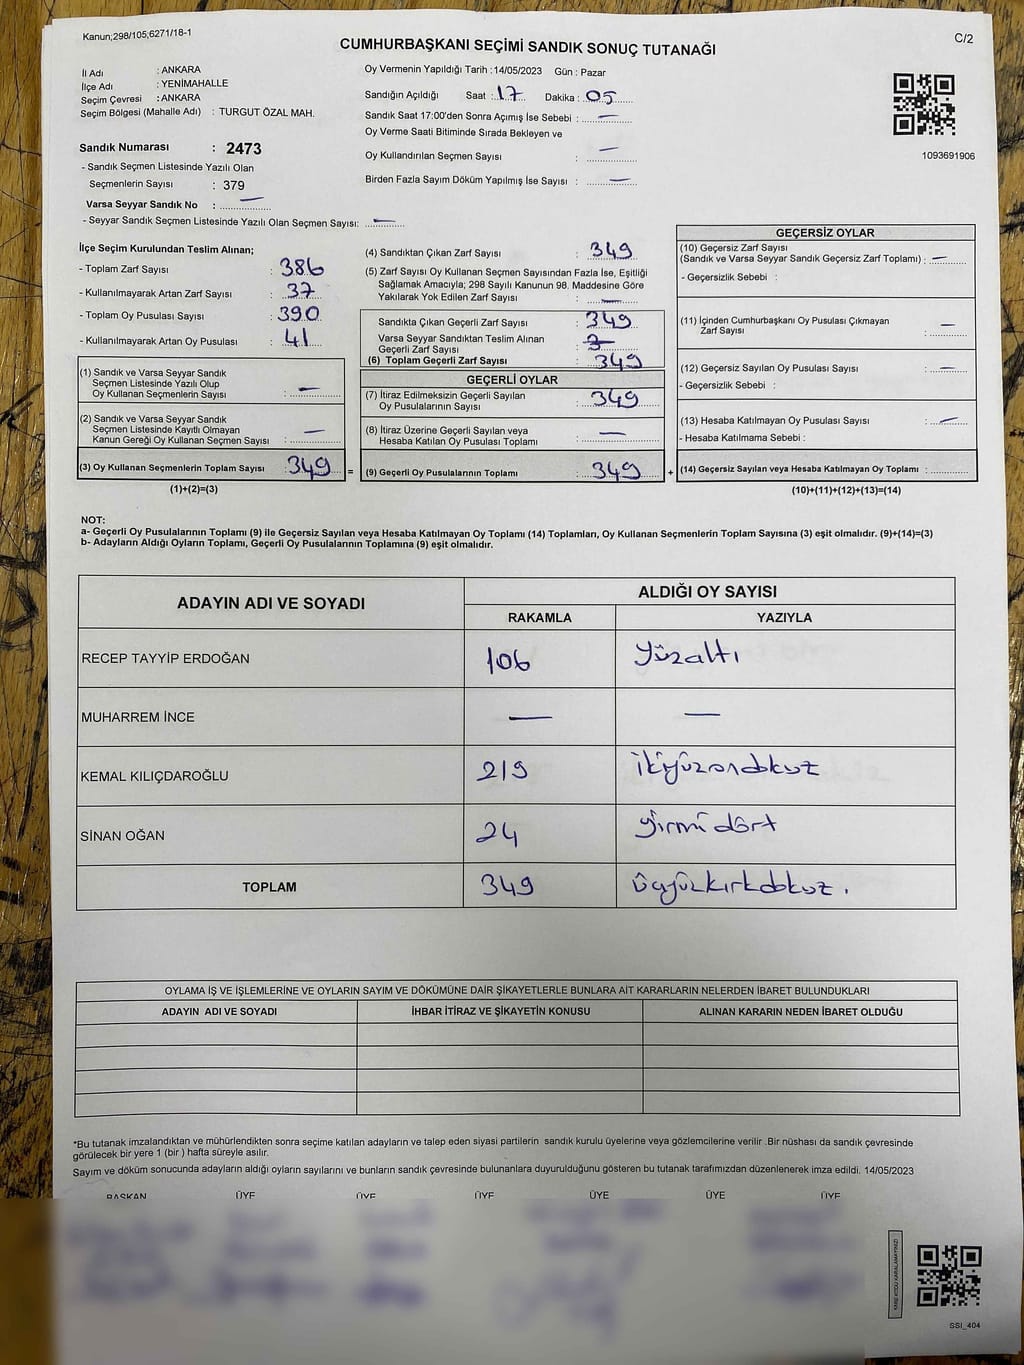 Kanun;298/105;6271/18-1
C/2
CUMHURBAŞKANI SEÇİMİ SANDIK SONUÇ TUTANAĞI
İl Adı : ANKARA
İlçe Adı : YENİMAHALLE
Seçim Çevresi : ANKARA
Seçim Bölgesi (Mahalle Adı) : TURGUT ÖZAL MAH.
Sandık Numarası : 2473
- Sandık Seçmen Listesinde Yazılı Olan
Seçmenlerin Sayısı : 379
Varsa Seyyar Sandık No : —
- Seyyar Sandık Seçmen Listesinde Yazılı Olan Seçmen Sayısı: —
Oy Vermenin Yapıldığı Tarih :14/05/2023 Gün : Pazar
Sandığın Açıldığı Saat : 17 Dakika : 05
Sandık Saat 17:00'den Sonra Açımış İse Sebebi : —
Oy Verme Saati Bitiminde Sırada Bekleyen ve
Oy Kullandırılan Seçmen Sayısı : —
Birden Fazla Sayım Döküm Yapılmış İse Sayısı : —
1093691906
İlçe Seçim Kurulundan Teslim Alınan;
- Toplam Zarf Sayısı : 386
- Kullanılmayarak Artan Zarf Sayısı : 37
- Toplam Oy Pusulası Sayısı : 390
- Kullanılmayarak Artan Oy Pusulası : 41
(1) Sandık ve Varsa Seyyar Sandık
Seçmen Listesinde Yazılı Olup
Oy Kullanan Seçmenlerin Sayısı : —
(2) Sandık ve Varsa Seyyar Sandık
Seçmen Listesinde Kayıtlı Olmayan
Kanun Gereği Oy Kullanan Seçmen Sayısı : —
(3) Oy Kullanan Seçmenlerin Toplam Sayısı : 349 =
(1)+(2)=(3)
(4) Sandıktan Çıkan Zarf Sayısı : 349
(5) Zarf Sayısı Oy Kullanan Seçmen Sayısından Fazla İse, Eşitliği
Sağlamak Amacıyla; 298 Sayılı Kanunun 98. Maddesine Göre
Yakılarak Yok Edilen Zarf Sayısı : —
Sandıkta Çıkan Geçerli Zarf Sayısı : 349
Varsa Seyyar Sandıktan Teslim Alınan
Geçerli Zarf Sayısı :
(6) Toplam Geçerli Zarf Sayısı : 349
GEÇERLİ OYLAR
(7) İtiraz Edilmeksizin Geçerli Sayılan
Oy Pusulalarının Sayısı : 349
(8) İtiraz Üzerine Geçerli Sayılan veya
Hesaba Katılan Oy Pusulası Toplamı : —
(9) Geçerli Oy Pusulalarının Toplamı : 349 +
GEÇERSİZ OYLAR
(10) Geçersiz Zarf Sayısı
(Sandık ve Varsa Seyyar Sandık Geçersiz Zarf Toplamı) : —
- Geçersizlik Sebebi :
(11) İçinden Cumhurbaşkanı Oy Pusulası Çıkmayan
Zarf Sayısı : —
(12) Geçersiz Sayılan Oy Pusulası Sayısı : —
- Geçersizlik Sebebi :
(13) Hesaba Katılmayan Oy Pusulası Sayısı : —
- Hesaba Katılmama Sebebi :
(14) Geçersiz Sayılan veya Hesaba Katılmayan Oy Toplamı :
(10)+(11)+(12)+(13)=(14)
NOT:
a- Geçerli Oy Pusulalarının Toplamı (9) ile Geçersiz Sayılan veya Hesaba Katılmayan Oy Toplamı (14) Toplamları, Oy Kullanan Seçmenlerin Toplam Sayısına (3) eşit olmalıdır. (9)+(14)=(3)
b- Adayların Aldığı Oyların Toplamı, Geçerli Oy Pusulalarının Toplamına (9) eşit olmalıdır.
ADAYIN ADI VE SOYADI ALDIĞI OY SAYISI
RAKAMLA YAZIYLA
RECEP TAYYİP ERDOĞAN 106 yüzaltı
MUHARREM İNCE — —
KEMAL KILIÇDAROĞLU 219 ikiyüzondokuz
SİNAN OĞAN 24 yirmidört
TOPLAM 349 üçyüzkırkdokuz.
OYLAMA İŞ VE İŞLEMLERİNE VE OYLARIN SAYIM VE DÖKÜMÜNE DAİR ŞİKAYETLERLE BUNLARA AİT KARARLARIN NELERDEN İBARET BULUNDUKLARI
ADAYIN ADI VE SOYADI İHBAR İTİRAZ VE ŞİKAYETİN KONUSU ALINAN KARARIN NEDEN İBARET OLDUĞU
*Bu tutanak imzalandıktan ve mühürlendikten sonra seçime katılan adayların ve talep eden siyasi partilerin sandık kurulu üyelerine veya gözlemcilerine verilir .Bir nüshası da sandık çevresinde
görülecek bir yere 1 (bir ) hafta süreyle asılır.
Sayım ve döküm sonucunda adayların aldığı oyların sayılarını ve bunların sandık çevresinde bulunanlara duyurulduğunu gösteren bu tutanak tarafımızdan düzenlenerek imza edildi. 14/05/2023
BAŞKAN ÜYE ÜYE ÜYE ÜYE ÜYE ÜYE
SSI_404